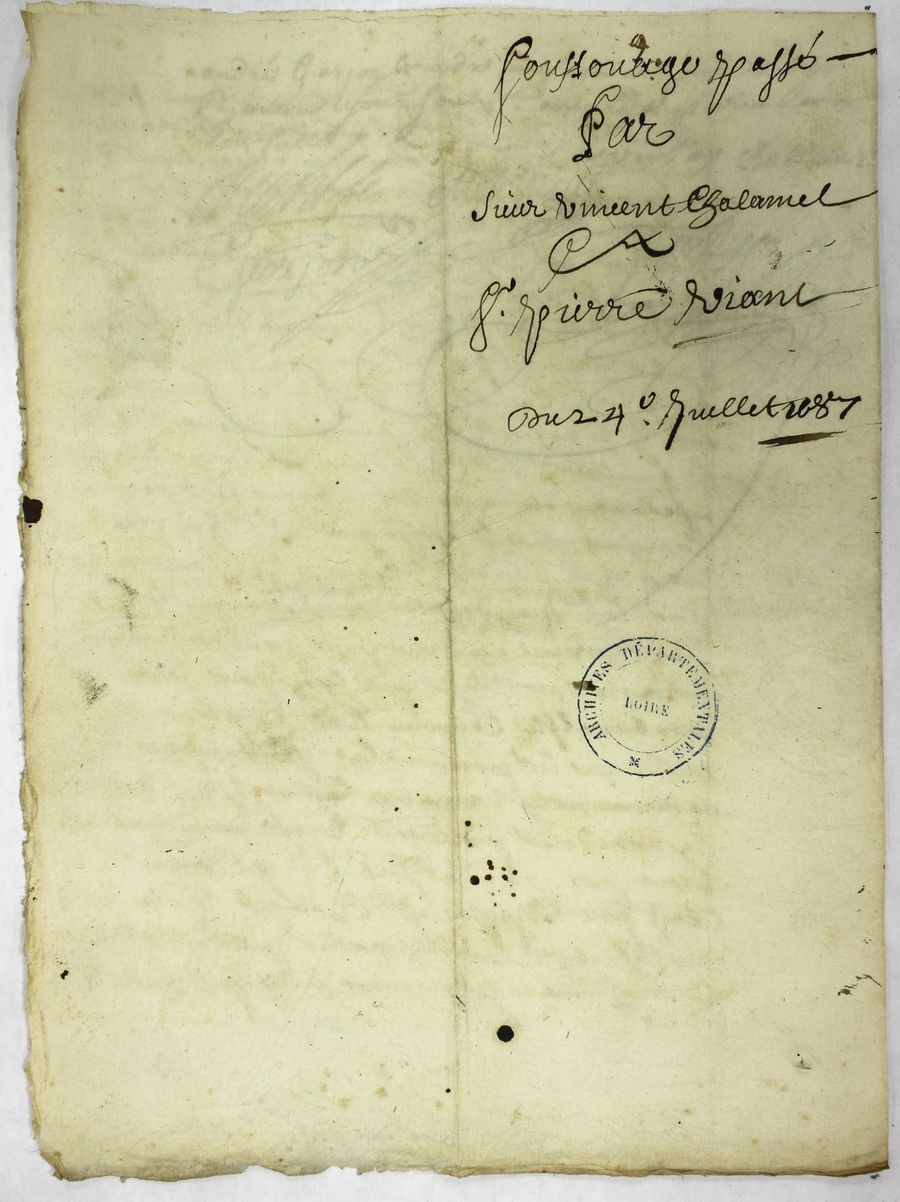 passé
Par
Sieur Vincent Chalamel
A
Sr. pierre viant
Du 24e. Juellet 1687
ARCHIVES DÉPARTEMENTALES
LOIRE